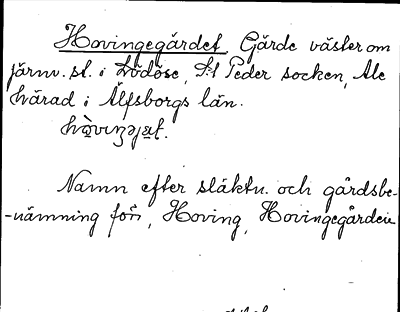 Hovingegärdet Gärde väster om
järnv. st. i Lödöse, S:t Peder socken, Ale
härad i Älfsborgs län.
Namn efter släktn. och gårdsbe-
-nämning förr, Hoving, Hovingegården